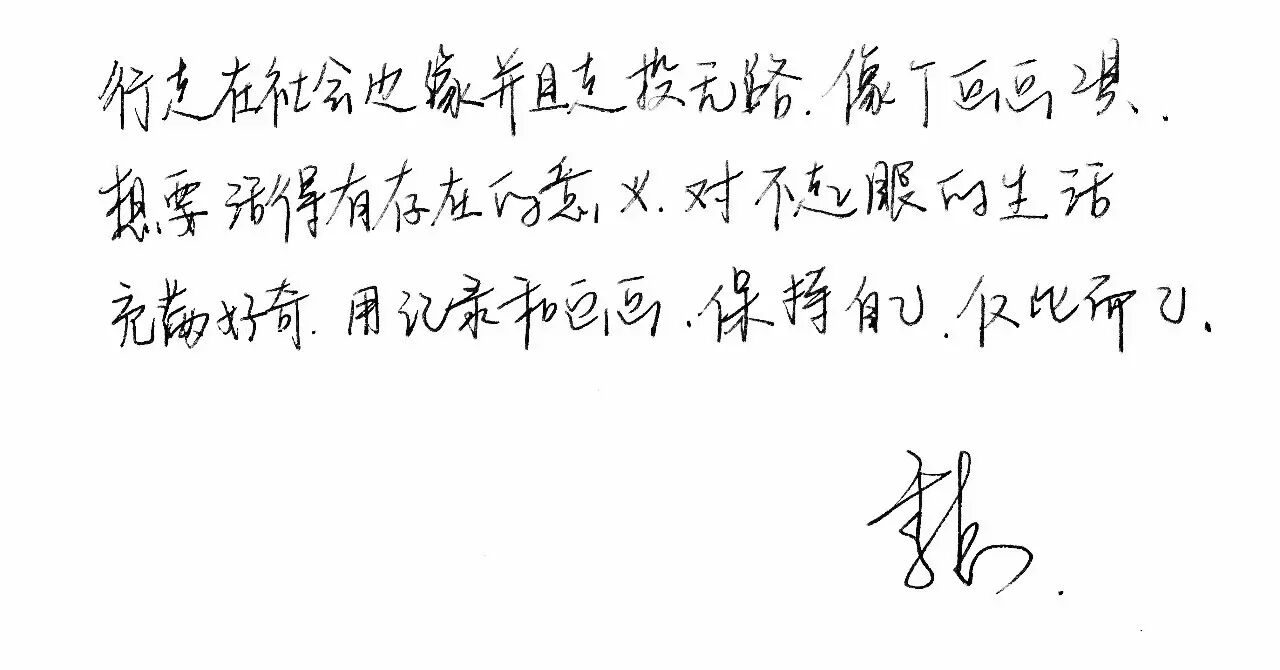 行走在社会边缘并且走投无路.像个画画工具.
想要活得有存在的意义.对不起眼的生活
充满好奇.用记录和画画.保持自己.仅此而已.